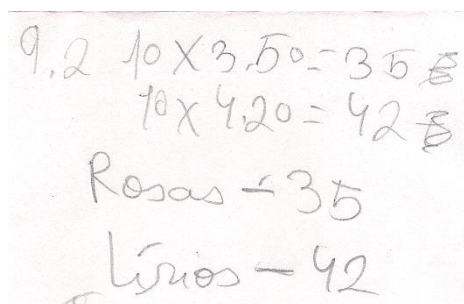 9.2 10 X 3.50 = 35
10 X 4.20 = 42
Rosas - 35
Lírios - 42